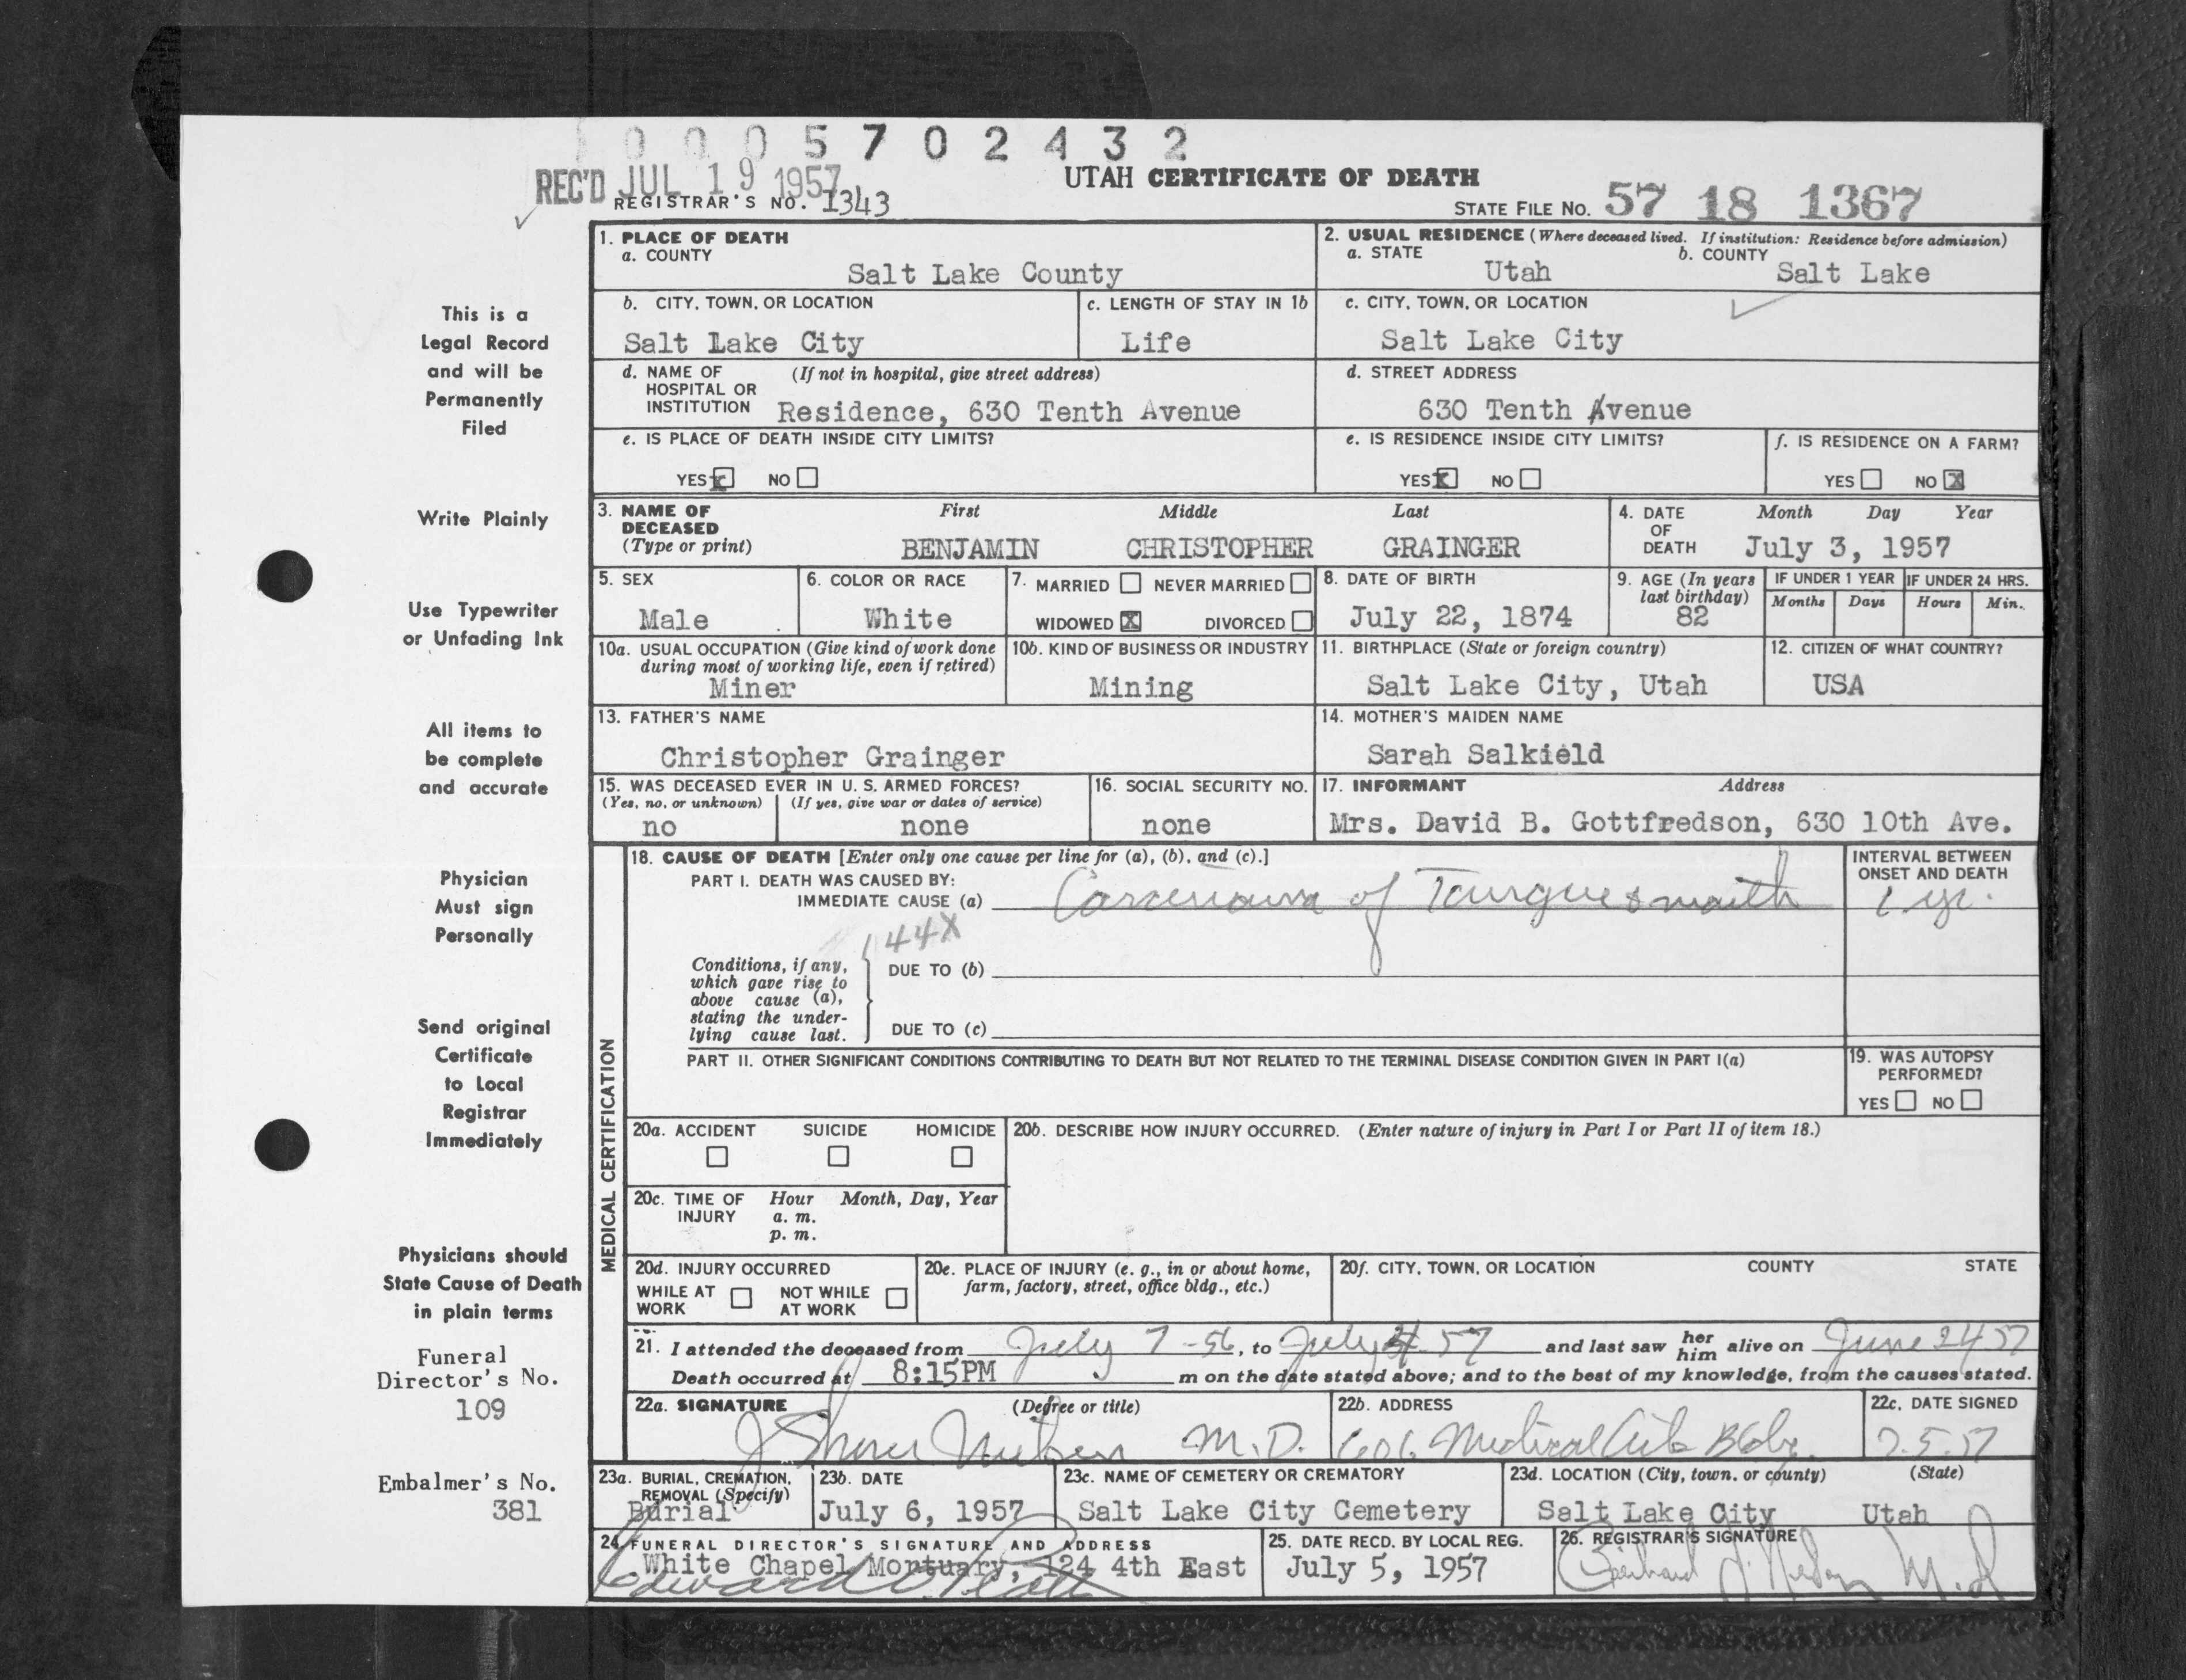 0005702432
REC'D JUL 19 1957
UTAH CERTIFICATE OF DEATH
REGISTRAR'S NO. 1343
STATE FILE NO. 57 18 1367
This is a
Legal Record
and will be
Permanently
Filed
Write Plainly
Use Typewriter
or Unfading Ink
All items to
be complete
and accurate
Physician
Must sign
Personally
Send original
Certificate
to Local
Registrar
Immediately
Physicians should
State Cause of Death
in plain terms
Funeral
Director's No.
109
Embalmer's No.
381
1. PLACE OF DEATH
a. COUNTY
Salt Lake County
2. USUAL RESIDENCE (Where deceased lived. If institution: Residence before admission)
a. STATE
Utah
b. COUNTY
Salt Lake
b. CITY, TOWN, OR LOCATION
Salt Lake City
c. LENGTH OF STAY IN 1b
Life
c. CITY, TOWN, OR LOCATION
Salt Lake City
d. NAME OF (If not in hospital, give street address)
HOSPITAL OR
INSTITUTION Residence, 630 Tenth Avenue
d. STREET ADDRESS
630 Tenth Avenue
e. IS PLACE OF DEATH INSIDE CITY LIMITS?
YES X NO
e. IS RESIDENCE INSIDE CITY LIMITS?
YES X NO
f. IS RESIDENCE ON A FARM?
YES NO X
3. NAME OF DECEASED (Type or print)
First Middle Last
BENJAMIN CHRISTOPHER GRAINGER
4. DATE OF DEATH
Month Day Year
July 3, 1957
5. SEX
Male
6. COLOR OR RACE
White
7. MARRIED NEVER MARRIED
WIDOWED X DIVORCED
8. DATE OF BIRTH
July 22, 1874
9. AGE (In years last birthday)
82
IF UNDER 1 YEAR
Months Days
IF UNDER 24 HRS.
Hours Min.
10a. USUAL OCCUPATION (Give kind of work done
during most of working life, even if retired)
Miner
10b. KIND OF BUSINESS OR INDUSTRY
Mining
11. BIRTHPLACE (State or foreign country)
Salt Lake City, Utah
12. CITIZEN OF WHAT COUNTRY?
USA
13. FATHER'S NAME
Christopher Grainger
14. MOTHER'S MAIDEN NAME
Sarah Salkield
15. WAS DECEASED EVER IN U. S. ARMED FORCES?
(Yes, no, or unknown) (If yes, give war or dates of service)
no none
16. SOCIAL SECURITY NO.
none
17. INFORMANT Address
Mrs. David B. Gottfredson, 630 10th Ave.
MEDICAL CERTIFICATION
18. CAUSE OF DEATH [Enter only one cause per line for (a), (b), and (c).]
PART I. DEATH WAS CAUSED BY:
IMMEDIATE CAUSE (a) Carcinoma of Tongue & mouth
INTERVAL BETWEEN
ONSET AND DEATH
1 yr.
144X
Conditions, if any,
which gave rise to
above cause (a),
stating the under-
lying cause last.
DUE TO (b)
DUE TO (c)
PART II. OTHER SIGNIFICANT CONDITIONS CONTRIBUTING TO DEATH BUT NOT RELATED TO THE TERMINAL DISEASE CONDITION GIVEN IN PART I(a)
19. WAS AUTOPSY
PERFORMED?
YES NO
20a. ACCIDENT SUICIDE HOMICIDE
20b. DESCRIBE HOW INJURY OCCURRED. (Enter nature of injury in Part I or Part II of item 18.)
20c. TIME OF INJURY
Hour Month, Day, Year
a. m.
p. m.
20d. INJURY OCCURRED
WHILE AT WORK NOT WHILE AT WORK
20e. PLACE OF INJURY (e. g., in or about home,
farm, factory, street, office bldg., etc.)
20f. CITY, TOWN, OR LOCATION COUNTY STATE
21. I attended the deceased from July 7 - 56, to July 57 and last saw her him alive on June 24 57
Death occurred at 8:15PM m on the date stated above; and to the best of my knowledge, from the causes stated.
22a. SIGNATURE (Degree or title)
M.D.
22b. ADDRESS
Medical Arts Bldg.
22c. DATE SIGNED
7.5.57
23a. BURIAL, CREMATION,
REMOVAL (Specify)
Burial
23b. DATE
July 6, 1957
23c. NAME OF CEMETERY OR CREMATORY
Salt Lake City Cemetery
23d. LOCATION (City, town, or county) (State)
Salt Lake City Utah
24. FUNERAL DIRECTOR'S SIGNATURE AND ADDRESS
White Chapel Mortuary, 124 4th East
25. DATE RECD. BY LOCAL REG.
July 5, 1957
26. REGISTRAR'S SIGNATURE
M.D